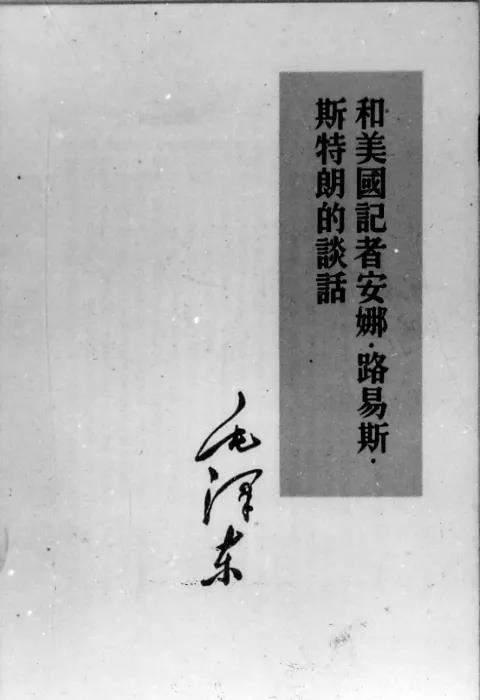 和美國記者安娜·路易斯·
斯特朗的談話
毛澤东